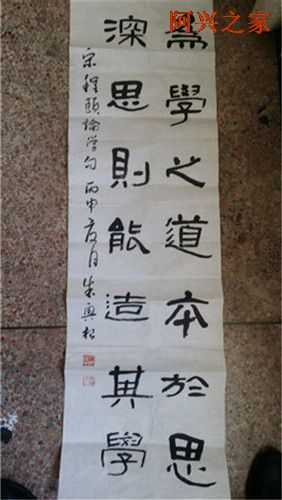 阿兴之家
為學之道本於思
深思則能造其學
宋程頤論學句 丙申 月朱興松